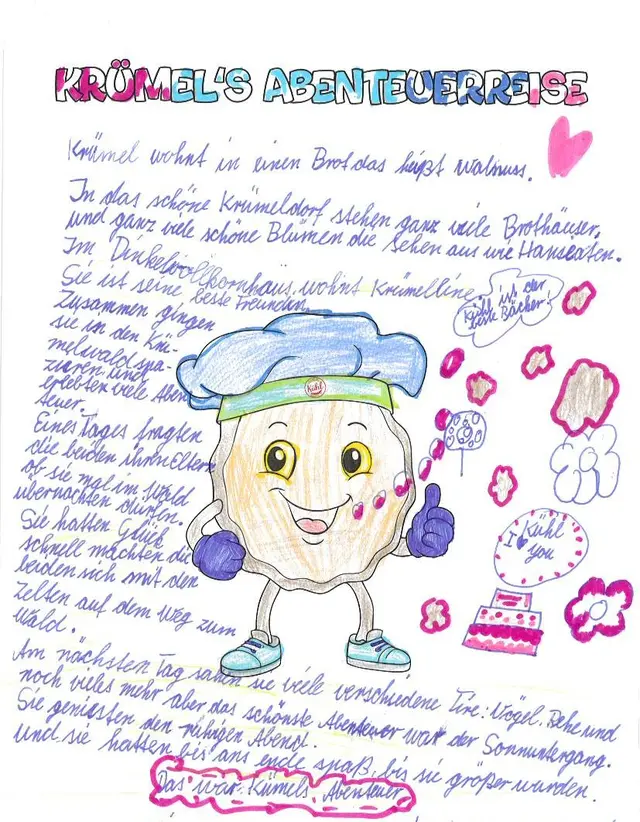 KRÜMEL'S ABENTEUERREISE
Krümel wohnt in einen Brot das heißt Walnuss.
In das schöne Krümeldorf stehen ganz viele Brothäuser,
und ganz viele schöne Blümen die sehen aus wie Hanseaten.
Im Dinkelvollkornhaus wohnt Krümelline
Sie ist seine beste Freundin,
zusammen gingen
sie in den Krü-
melwald spa-
zieren und
erlebten viele Aben
teuer.
Eines Tages fragten
die beiden ihren Eltern
ob sie mal im Wald
übernachten dürfen.
Sie hatten Glück
schnell machten die
beiden sich mit den
Zelten auf dem Weg zum
Wald.
Am nächsten Tag sahen sie viele verschiedene Tire: Vögel, Rehe und
noch vieles mehr aber das schönste Abenteuer war der Sonnuntergang.
Sie geniosten den ruhigen Abend.
und sie hatten bis ans ende spaß, bis sie größer wurden.
Das war Kümels Abenteuer
Kühl ist der
beste Bäcker!
Kühl
Kühl
I you